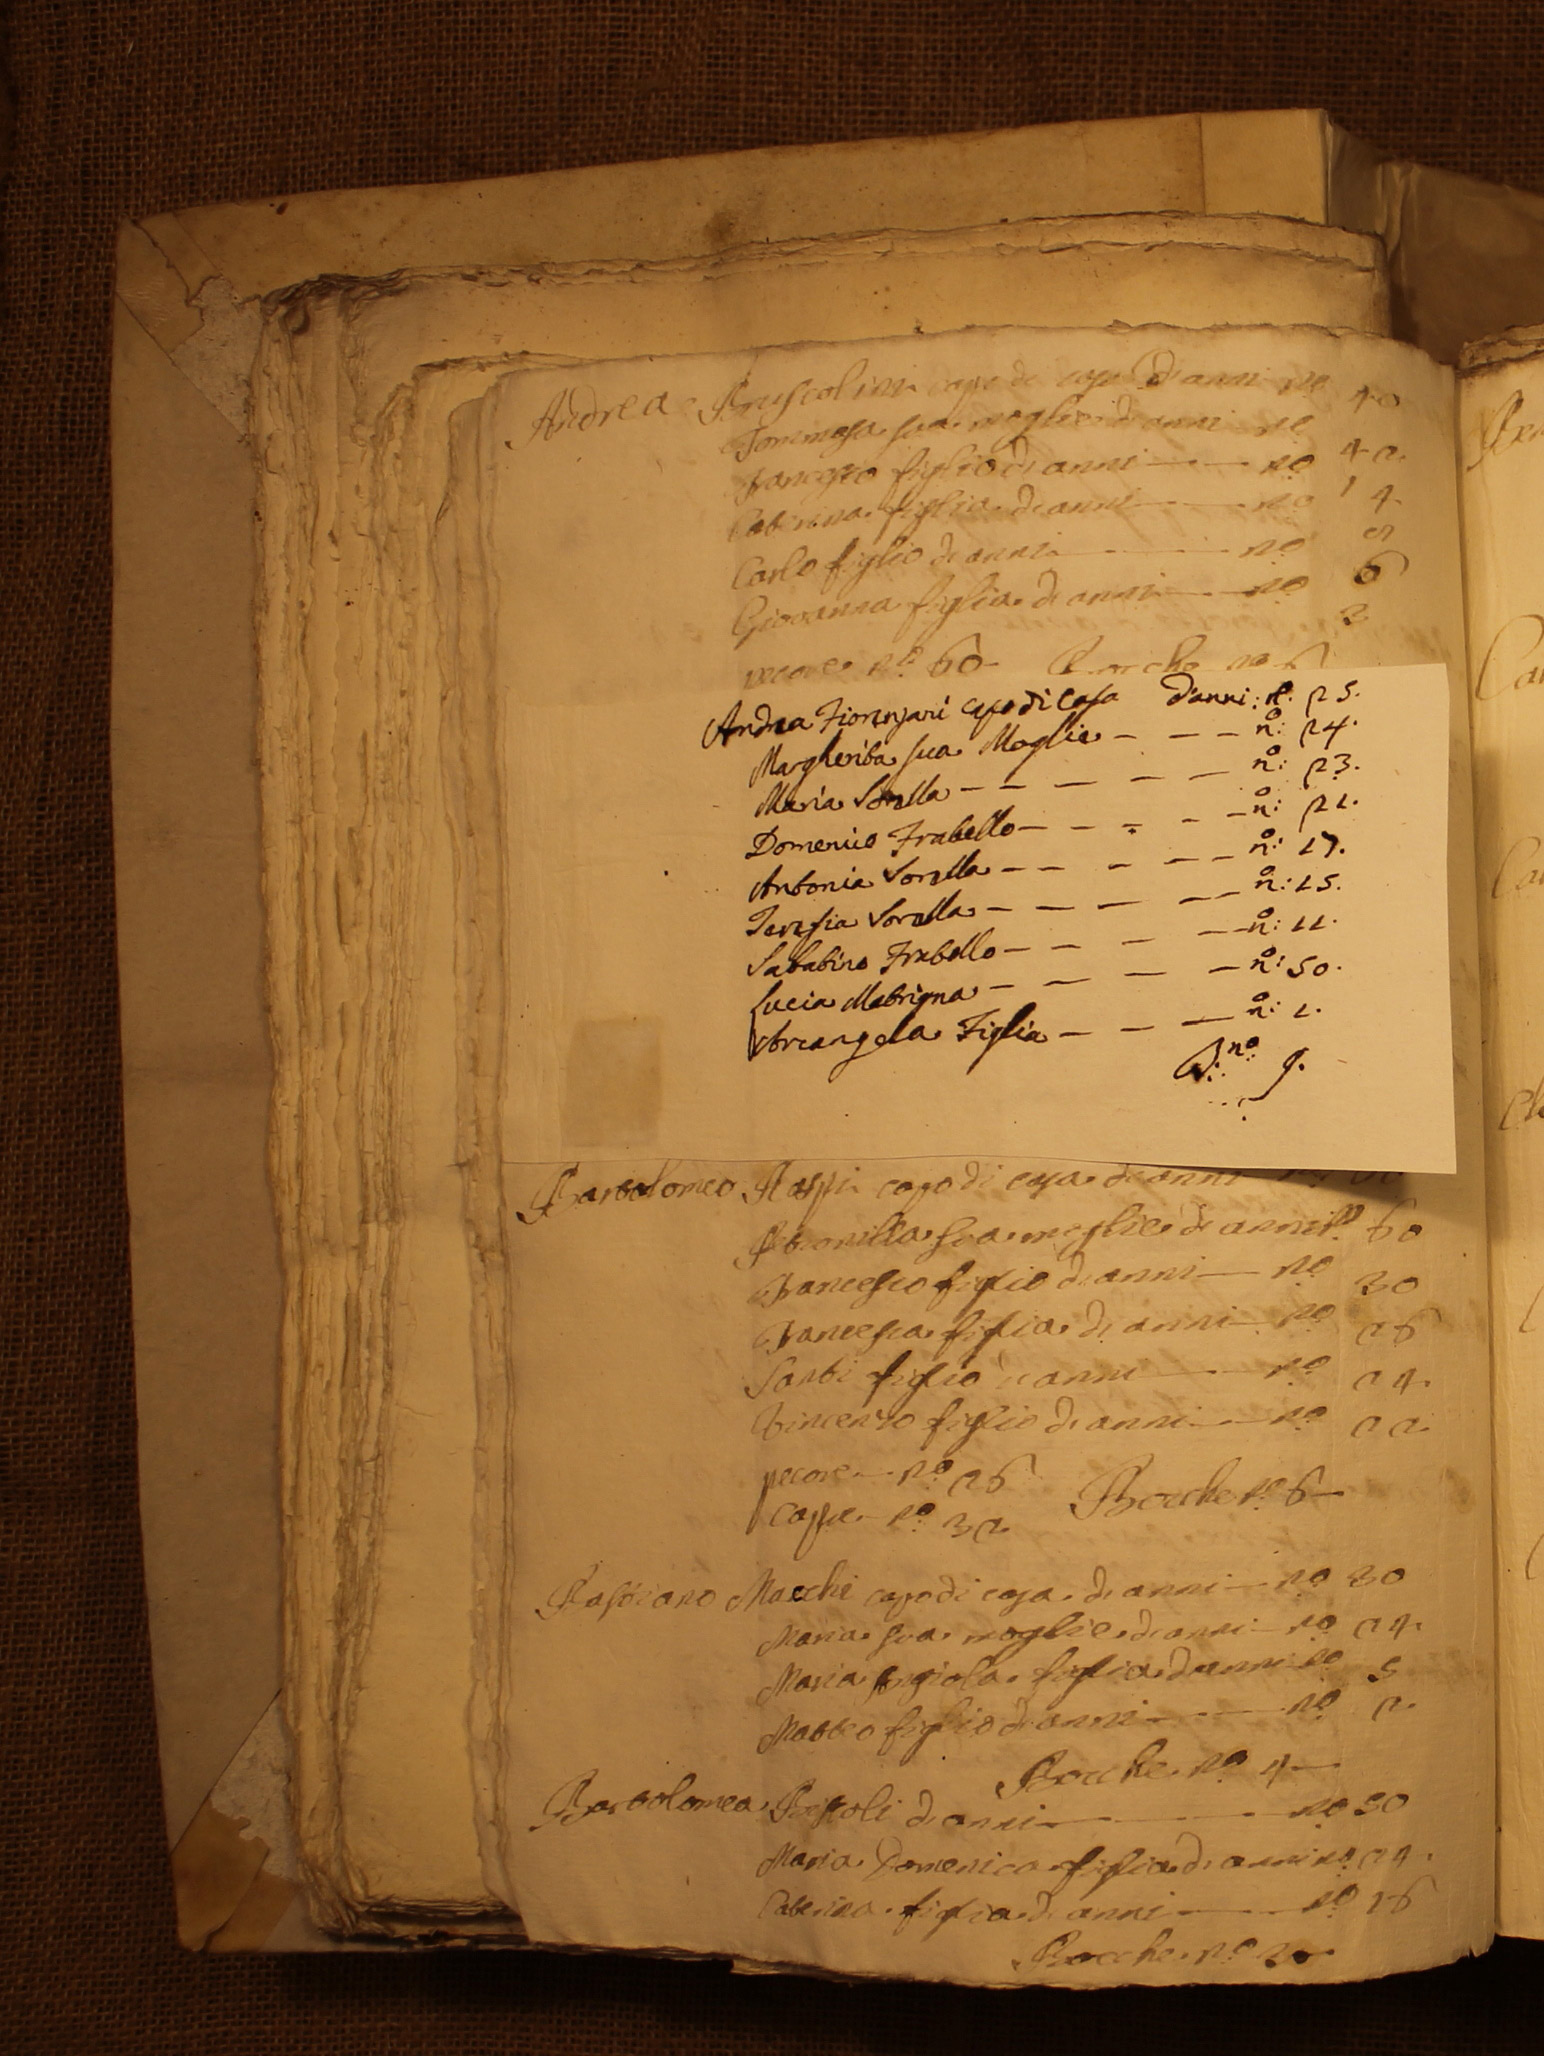 Andrea Bruscolini capo di casa d'anni no 40
Tommasa sua moglie di anni no 42
Francesco figlio di anni no 14
Catterina figlia di anni no 9
Carlo figlio di anni no 6
Giovanna figlia di anni no 3
pecore no 60 Bocche no 6
Andrea Fiorenzani capo di Casa d'anni: no: 25.
Margherita sua Moglie - - - no: 24.
Maria Sorella - - - - - no: 23.
Domenico Fratello - - - - - no: 21.
Antonia Sorella - - - - - no: 17.
Teresia Sorella - - - - - no: 15.
Sabatino Fratello - - - - no: 11.
Lucia Matrigna - - - - - no: 50.
Arcangela Figlia - - - no: 1.
B: no: 9.
Bartolomeo Raspi capo di casa di anni no
Petronilla sua moglie di anni no 60
Francesco figlio di anni no 30
Francesca figlia di anni no 26
Santi figlio d anni no 24
Vincenzo figlio di anni no 22
pecore no 26 Bocche no 6
Capre no 32
Bastiano Macchi capo di casa di anni no 30
Maria sua moglie di anni no 24
Maria Angiola figlia d anni no 5
Matteo figlio di anni no 2
Bocche no 4
Bartolomea di anni no 50
Maria Domenica figlia di anni no 24
Caterina figlia di anni no 16
Bocche no 3